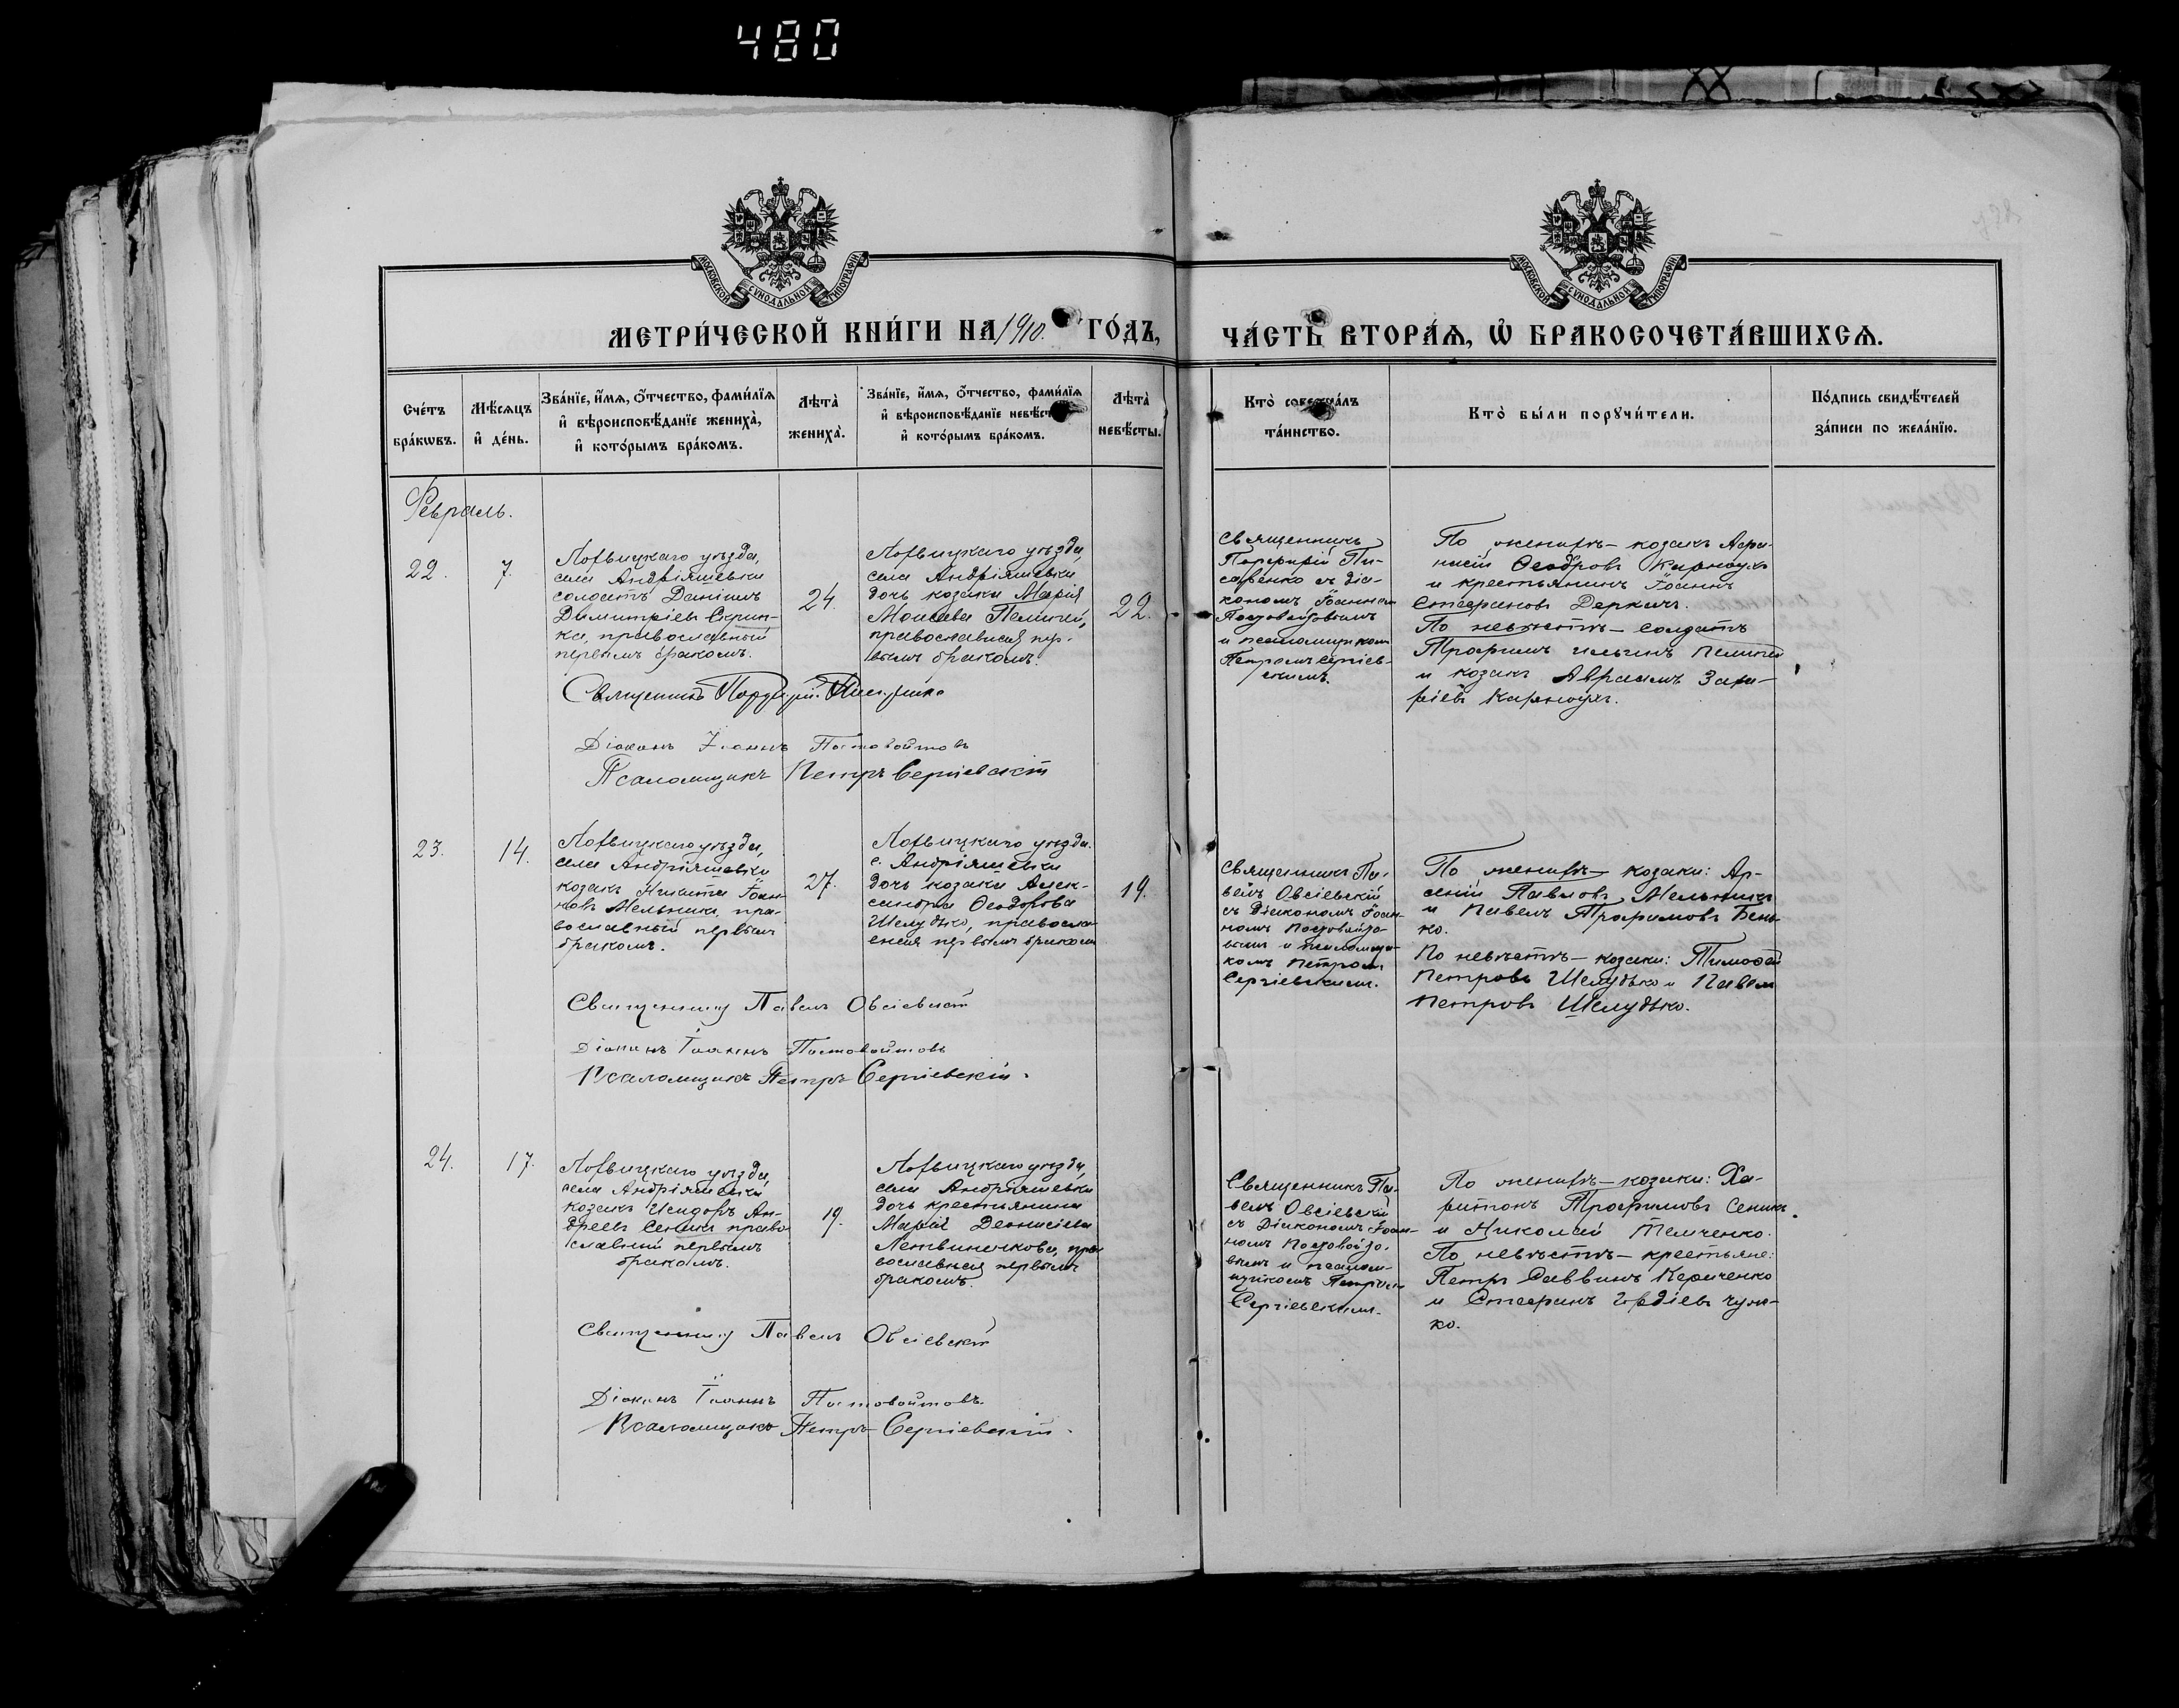 480
МОСКОВСКОЙ СУНОДАЛЬНОЙ ТИПОГРАФІИ
МОСКОВСКОЙ СУНОДАЛЬНОЙ ТИПОГРАФІИ
МЕТРИ́ЧЕСКОЙ КНИ́ГИ НА 1910. ГО́ДЪ,
ЧА́СТЬ ВТОРА́Ѧ, Ѡ҆ БРАКОСОЧЕТА́ВШИХСѦ.
Сче́тъ
бра́кѡвъ.
Мѣ́сѧцъ
и҆ де́нь.
Зва́нїе, и҆́мѧ, ѻ҆́тчество, фами́лїѧ
и҆ вѣроисповѣ́данїе жениха̀,
и҆ кото́рымъ бра́комъ.
Лѣта̀
жениха̀.
Зва́нїе, и҆́мѧ, ѻ҆́тчество, фами́лїѧ
и҆ вѣроисповѣ́данїе невѣ́ст
и҆ кото́рымъ бра́комъ.
Лѣта̀
невѣ́сты.
Кто̀ соверша́лъ
та́инство.
Кто̀ бы́ли порꙋчи́тели.
По́дпись свидѣ́телей
за́писи по жела́нїю.
Февраль.
22.
7.
Лохвицкаго уѣзда,
села Андріяшевки
солдатъ Даніилъ
Димитріевъ Скрип-
ка, православный
первымъ бракомъ.
24.
Лохвицкаго уѣзда,
села Андріяшевки
дочь козака Марія
Моисеева
православная пер-
вымъ бракомъ.
22.
Священникъ
Порфирій Пи-
саренко съ діа-
кономъ Іоанном
Постовойтовымъ
и псаломщикомъ
Петромъ Сергіев-
скимъ.
По женихѣ – козакъ Аѳа-
насій Ѳеодоровъ Карнаухъ
и крестьянинъ Іоаннъ
Стефановъ Деркачъ.
По невѣстѣ – солдатъ
Трофимъ Ильинъ
и козакъ Авраамъ Заха-
ріевъ Карнаухъ.
Священникъ Порфирій Писаренко
Діаконъ Іоаннъ Постовойтовъ
Псаломщикъ Петръ Сергіевскій
23.
14.
Лохвицкаго уѣзда,
села Андріяшевки
козакъ Никита Іоан-
новъ Мельникъ, пра-
вославный первым
бракомъ.
27.
Лохвицкаго уѣзда.
с. Андріяшевки
дочь козака Алек-
сандра Ѳеодорова
Шелудько, правосла-
вная первымъ бракомъ
19.
Священникъ Па-
велъ Овсіевскій
съ Діакономъ Іоан-
номъ Постовойто-
вымъ и псаломщи-
комъ Петромъ
Сергіевскимъ.
По женихѣ – козаки: Ар-
сеній Павловъ Мельникъ
и Павелъ Трофимовъ Бень-
ко.
По невѣстѣ – козаки: Тимоѳей
Петровъ Шелудько и Павелъ
Петровъ Шелудько.
Священникъ Павелъ Овсіевскій
Діаконъ Іоаннъ Постовойтовъ
Псаломщикъ Петръ Сергіевскій.
24.
17.
Лохвицкаго уѣзда,
села Андріяшевки
козакъ Исидоръ Ан-
дреевъ Сеникъ право-
славный первымъ
бракомъ.
19.
Лохвицкаго уѣзда,
села Андріяшевки
дочь крестьянина
Марія Денисіева
Летвиненкова, пра-
вославная первымъ
бракомъ.
Священникъ Па-
велъ Овсіевскій
съ Діакономъ Іоан-
номъ Постовойто-
вымъ и псалом-
щикомъ Петромъ
Сергіевскимъ.
По женихѣ – козаки: Ха-
ритонъ Трофимовъ Сеникъ
и Николай Темченко.
По невѣстѣ – крестьяне:
Петръ Саввинъ
и Стефанъ Гордіевъ
ко.
Священникъ Павелъ Овсіевскій
Діаконъ Іоаннъ Постовойтовъ.
Псаломщикъ Петръ Сергіевскій.